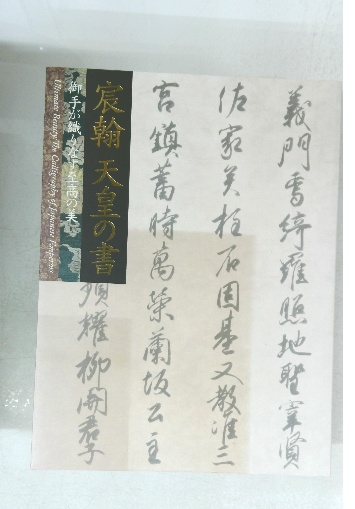 宸翰 天皇の書
御手が織りなす至高の美
Ultimate Beauty: The Calligraphy of Japanese Emperors
義門雪綺羅照地聖家賢
佐家美柱石固基又教准三
宮鎮蓄時萬榮蘭坂公主
頌耀柳開君子